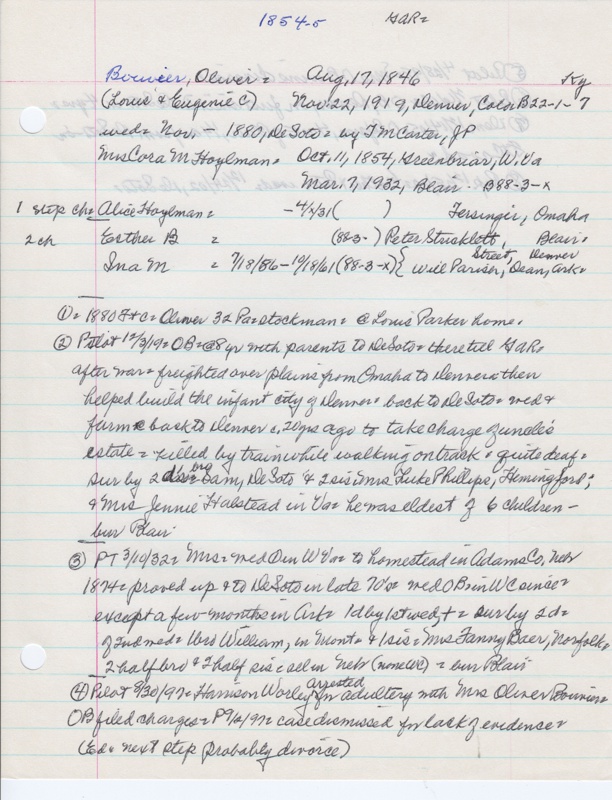 1854-5 GAR=
Bouvier, Oliver = Aug, 17, 1846 Ky
(Louis & Eugenie C) Nov. 22, 1919, Denver, Colo B22-1-7
wed = Nov. - 1880, DeSoto = by T M Carter, JP
Mrs Cora M Hoylman = Oct. 11, 1854, Greenbriar, W. Va
Mar. 7, 1932, Blair - B88-3-x
1 step ch = Alice Hoylman = -4/x/31 ( ) Fersinger, Omaha
2 ch Esther B = (88-3-) Peter Stricklett, Blair =
Ina M = 7/18/86 - 10/18/61 (88-3-x) { Street, Denver
Will Pariser, Dean, Ark =
① = 1880 F+C = Oliver 32 Pa = stockman = @ Louis Parker home =
② Pilot 12/3/19 = OB = @ 8 yr with parents to DeSoto = there till GAR =
after war = freighted over plains from Omaha to Denver = then
helped build the infant city of Denver = back to DeSoto = wed &
farm = back to Denver c. 20 yrs ago to take charge of uncle's
estate = killed by train while walking on track = quite deaf =
sur by 2 ds = bro Sam, DeSoto & 2 sis = Mrs Luke Phillips, Hemingford;
& Mrs Jennie Halstead in Va = he was eldest of 6 children -
bur Blair
③ PT 3/10/32 = Mrs = wed O in W Va = to homestead in Adams Co, Neb
1874 = proved up & to DeSoto in late 70's = wed OB in WC since =
except a few months in Ark = 1 d by 1st wed, + = sur by 2 d =
of 2nd wed = bro William, in Mont = & 1 sis = Mrs Fanny Baer, Norfolk =
2 half bro & 2 half sis = all in Nebr (none WC) = bur Blair
④ Pilot 9/30/97 = Harrison Worley arrested for adultery with Mrs Oliver Bouvier =
OB filed charges = P 9/2/97 = case dismissed for lack of evidence =
(Ed = next step probably divorce)